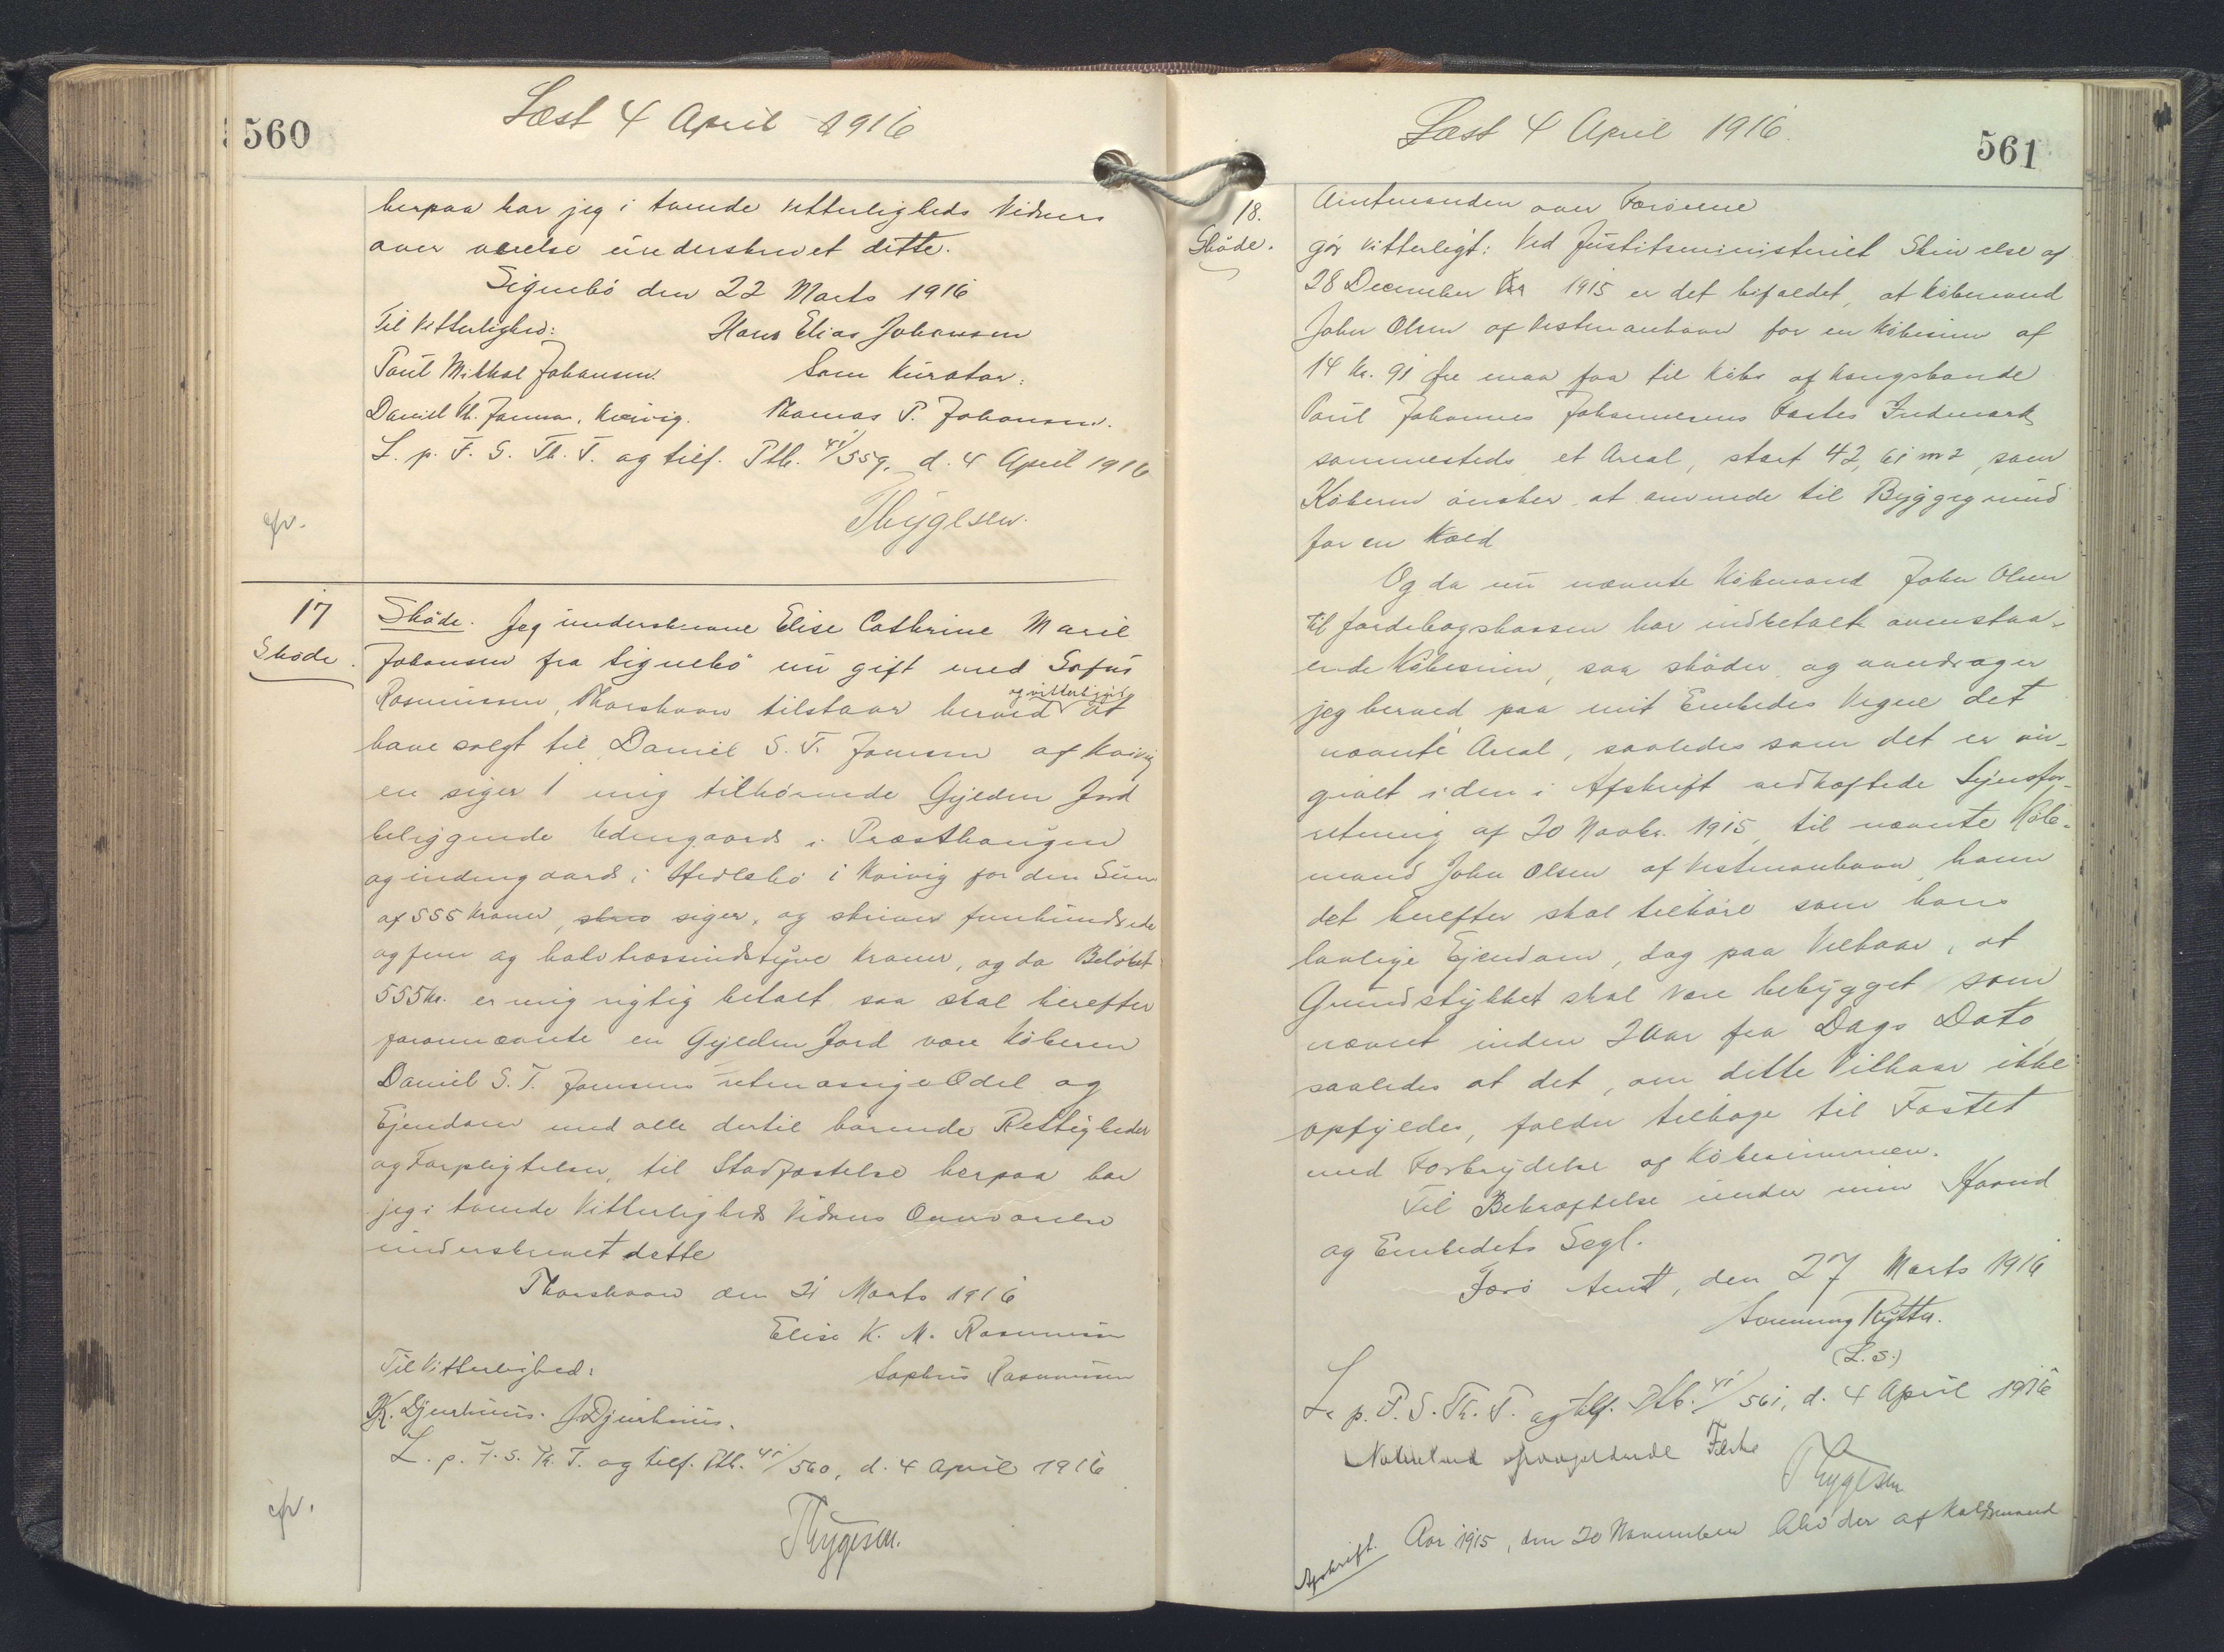 560
Læst 4 April 1916
herpaa har jeg i tvende Vitterligheds Vidners
over værelse underskrevet dette.
Signebö den 22 Marts 1916
Til Vitterlighed: Hans Elias Johansen
Poul Mikkal Johansen. Som Kurator:
Daniel Joensen, Kvivig. Thomas P. Johansen.
L. p. F. S. Th. T. og tilf. Ptb. 41/559, d. 4 April 1916
Thygesen.
cfr.
17
Sköde.
Sköde. Jeg underskrevne Elise Cathrine Marie
Johansen fra Signebö nu gift med Sofus
Rasmussen, Thorshavn tilstaar herved og vitterliggör at
have solgt til Daniel S. T. Joensen af Kvivig
en siger 1 mig tilhörende Gylden Jord
beliggende Udengaards i Præsthaugen
og indengaards i Hedlebö i Kvivig for den Sum
af 555 Kroner, skriv siger, og skriver femhundrede
og fem og halvtressindstyve Kroner, og da Belöbet
555 Kr. er mig rigtig betalt saa skal herefter
forannævnte en Gylden Jord være Köberen
Daniel S. T. Joensens retmæssige Odel og
Ejendom med alle dertil hörende Rettigheder
og Forpligtelser, til Stadfæstelse herpaa har
jeg i tvende Vitterligheds Vidners Overværelse
underskrevet dette
Thorshavn den 21 Marts 1916
Elise K. M. Rasmussen
Til Vitterlighed: Sophus Rasmussen
K. Djurhuus. J Djurhuus.
L. p. F. S. Th. T. og tilf. Ptb. 41/560, d. 4 April 1916
Thygesen.
cfr.
Læst 4 April 1916.
561
18.
Sköde.
Amtmanden over Færöerne
gör vitterligt: Ved Justitsministeriet Skrivelse af
28 December 1915 er det bifaldet, at Köbmand
John Olsen af Vestmanhavn for en Köbesum af
14 Kr. 91 Öre maa faa til Köbs af Kongsbonde
Poul Johannes Johannesens Fæstes Indmark
sammesteds et Areal, stort 42,61 m2, som
Köberen önsker at anvende til Byggegrund
for en Kæld
Og da nu nævnte Köbmand John Olsen
til Jordebogskassen har indbetalt ovenstaa-
ende Köbesum, saa sköder og overdrager
jeg herved paa mit Embedes Vegne det
nævnte Areal, saaledes som det er an-
givet i den i Afskrift vedhæftede Synsfor-
retning af 20 Novbr. 1915, til nævnte Köb-
mand John Olsen af Vestmanhavn, ham
det herefter skal tilhöre som hans
lovlige Ejendom, dog paa Vilkaar, at
Grundstykket skal være bebygget som
nævnt inden 2 Aar fra Dags Dato,
saaledes at det, om dette Vilkaar ikke
opfyldes, falder tilbage til Fæstet
med Forbrydelse af Köbesummen.
Til Bekræftelse under min Haand
og Embedets Segl.
Færö Amt, den 27 Marts 1916
Svenning Rytter.
(L. S.)
L. p. F. S. Th. T. og tilf. Ptb. 41/561, d. 4 April 1916
Thygesen
Afskrift. Aar 1915, den 20 November blev der af